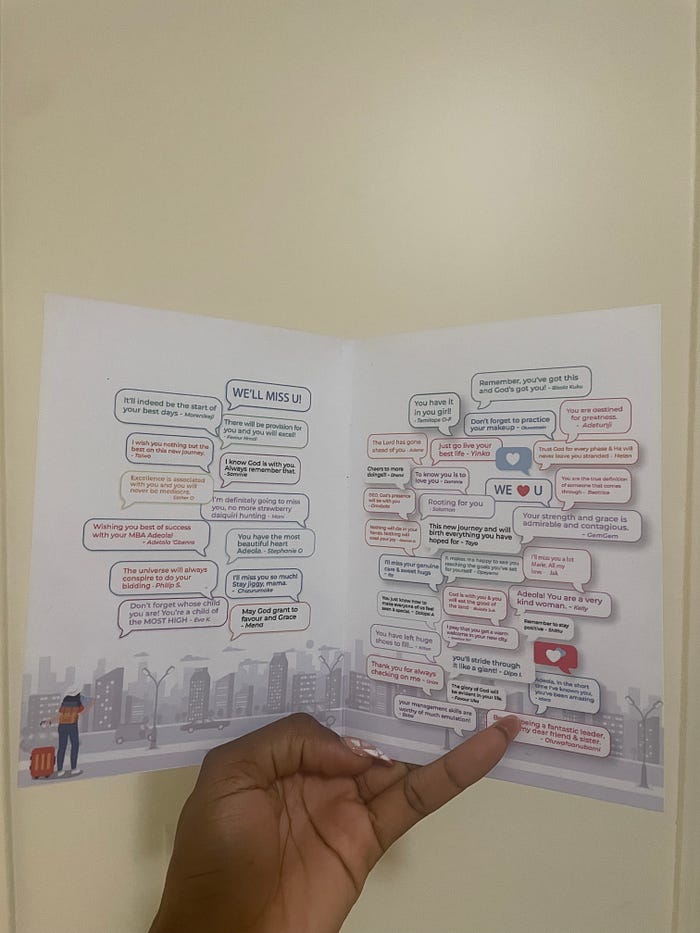 WE'LL MISS U!
It'll indeed be the start of
your best days - Morenikeji
There will be provision for
you and you will excel!
- Favour Nnadi
I wish you nothing but the
best on this new journey.
- Taiwo
I know God is with you.
Always remember that
- Sammie
Excellence is associated
with you and you will
never be mediocre.
- Esther O
I'm definitely going to miss
you, no more strawberry
daiquiri hunting - Moni
Wishing you best of success
with your MBA Adeola!
- Adetola 'Gbenro
You have the most
beautiful heart
Adeola. - Stephanie O
The universe will always
conspire to do your
bidding - Philip S.
I'll miss you so much!
Stay jiggy, mama.
- Chizurumoke
Don't forget whose child
you are! You're a child of
the MOST HIGH - Eva K.
May God grant to
favour and Grace
- Mena
Remember, you've got this
and God's got you! - Bisola Kuku
You have it
in you girl!
- Temitope O-F
Don't forget to practice
your makeup -
You are destined
for greatness.
- Adetunji
The Lord has gone
ahead of you -
just go live your
best life - Yinka
Trust God for every phase & He will
never leave you stranded - Helen
Cheers to more
doings!! -
To know you is to
love you - Dominic
WE U
You are the true definition
of someone that comes
through - Beatrice
GEO, God's presence
will be with you
Rooting for you
- Solomon
Your strength and grace is
admirable and contagious.
- GemGem
Nothing will die in your
hands. Nothing will
steal your joy -
This new journey and will
birth everything you have
hoped for - Tayo
I'll miss your genuine
care & sweet hugs
It makes me happy to see you
reaching the goals you've set
for yourself - Opeyemi
I'll miss you a lot
Marie. All my
love - Jek
You just know how to
make everyone of us feel
seen & special. - Dolapo A
God is with you & you
will eat the good of
the land -
Adeola! You are a very
kind woman. - Kelly
I pray that you get a warm
welcome in your new city.
Remember to stay
positive -
You have left huge
shoes to fill... -
you'll stride through
it like a giant! - Dipo I.
Thank you for always
checking on me -
The glory of God will
be evident in your life.
- Favour
Adeola, in the short
time I've known you,
you've been amazing
your management skills are
worthy of much emulation!
being a fantastic leader,
my dear friend & sister.
- Oluwafoanubami